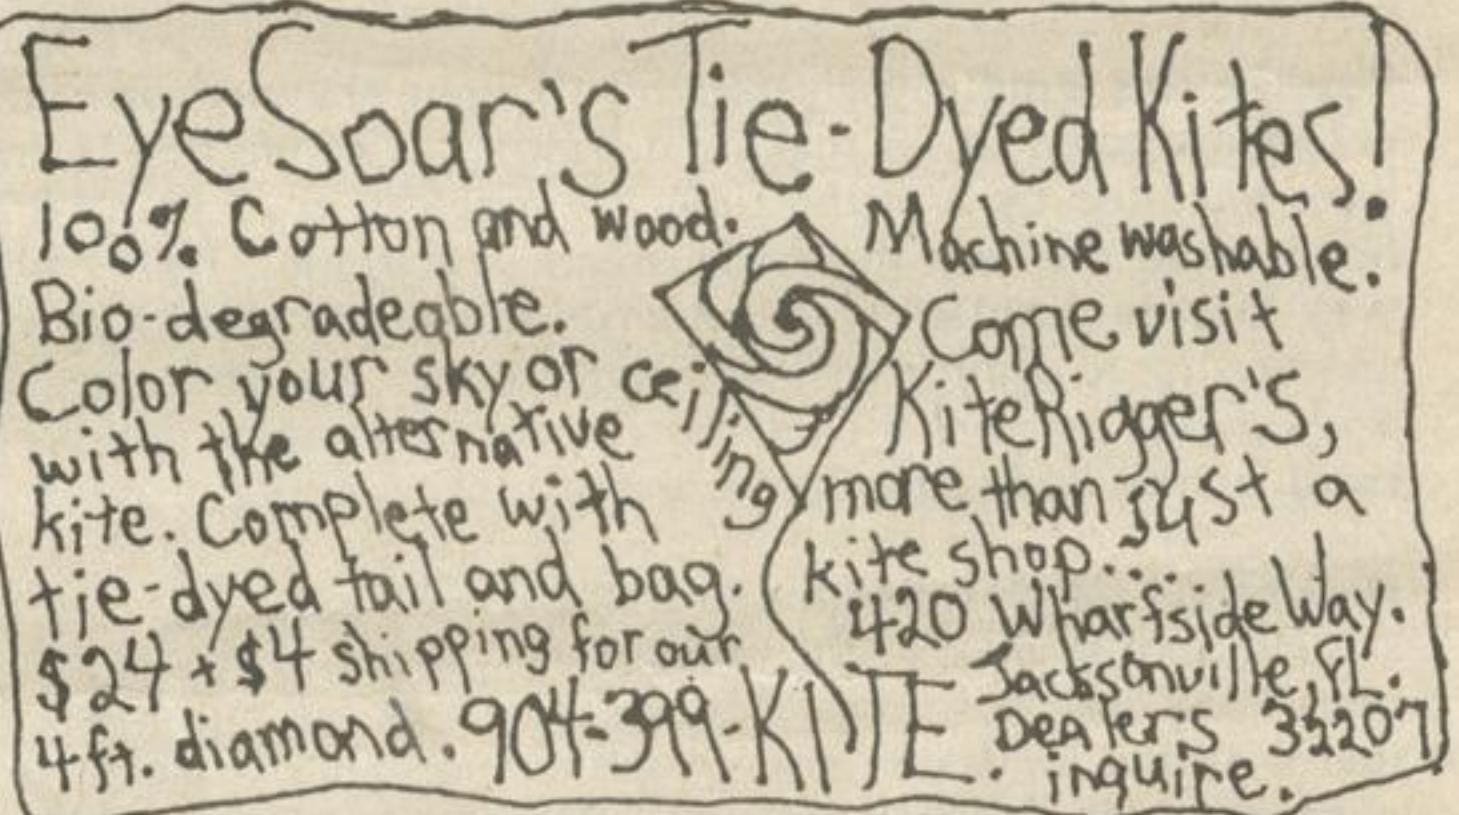 EyeSoar's Tie-Dyed Kites!
100% Cotton and wood.
Bio-degradeable.
Color your sky or ceiling
with the alternative
kite. Complete with
tie-dyed tail and bag.
$24 + $4 shipping for our
4ft. diamond. 904-399-KITE.
Machine washable.
Come visit
KiteRigger's,
more than just a
kite shop....
420 Wharfside Way.
Jacksonville, FL.
Dealers 32207
inquire.